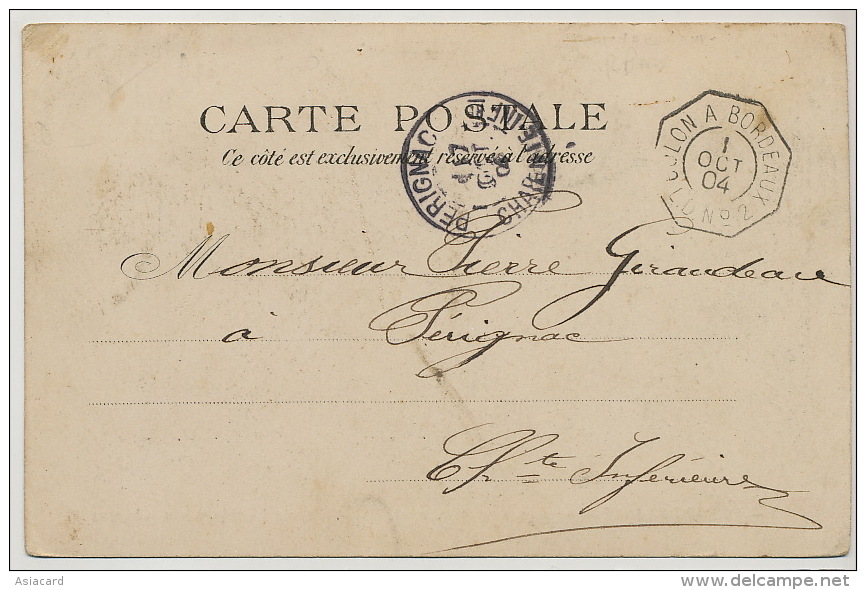 CARTE POSTALE
Ce côté est exclusivement réservé à l'adresse
PERIGNAC
CHARENTE INFRE
OCT
04
COLON A BORDEAUX
1
OCT
04
L.D. No 2
Monsieur Pierre Giraudeau
à Pérignac
Chte Inférieure
Asiacard
delcampe.net